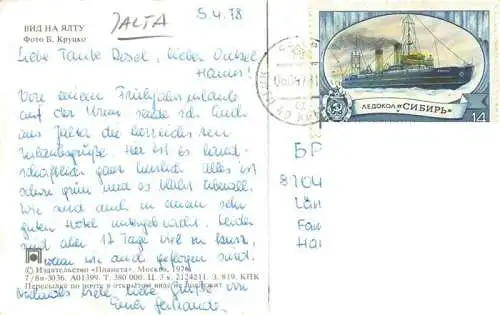 ВИД НА ЯЛТУ
Фото Б. Круцко
JALTA
5.4.78
Liebe Tante Resel, lieber Onkel
Hannes!
Von einem Frühjahrsurlaub
auf der Krim sende ich Euch
aus Jalta die herzlichsten
Urlaubsgrüße. Hier ist es land-
schaftlich ganz herrlich. Alles ist
schon grün und es blüht überall.
Wir sind auch in einem sehr
guten Hotel untergebracht. Leider
sind aber 12 Tage viel zu kurz,
wenn wir auch geflogen sind.
© Издательство «Планета». Москва, 1976
7/8п-3036. А01399. Т. 380 000. Ц. 3 к. 2124211. З. 819. КПК
Пересылку по почте в открытом виде не подлежит
Nochmals viele liebe Grüße von
Eurer
ЛЕДОКОЛ «СИБИРЬ»
14
БР
8104
Fam
Han